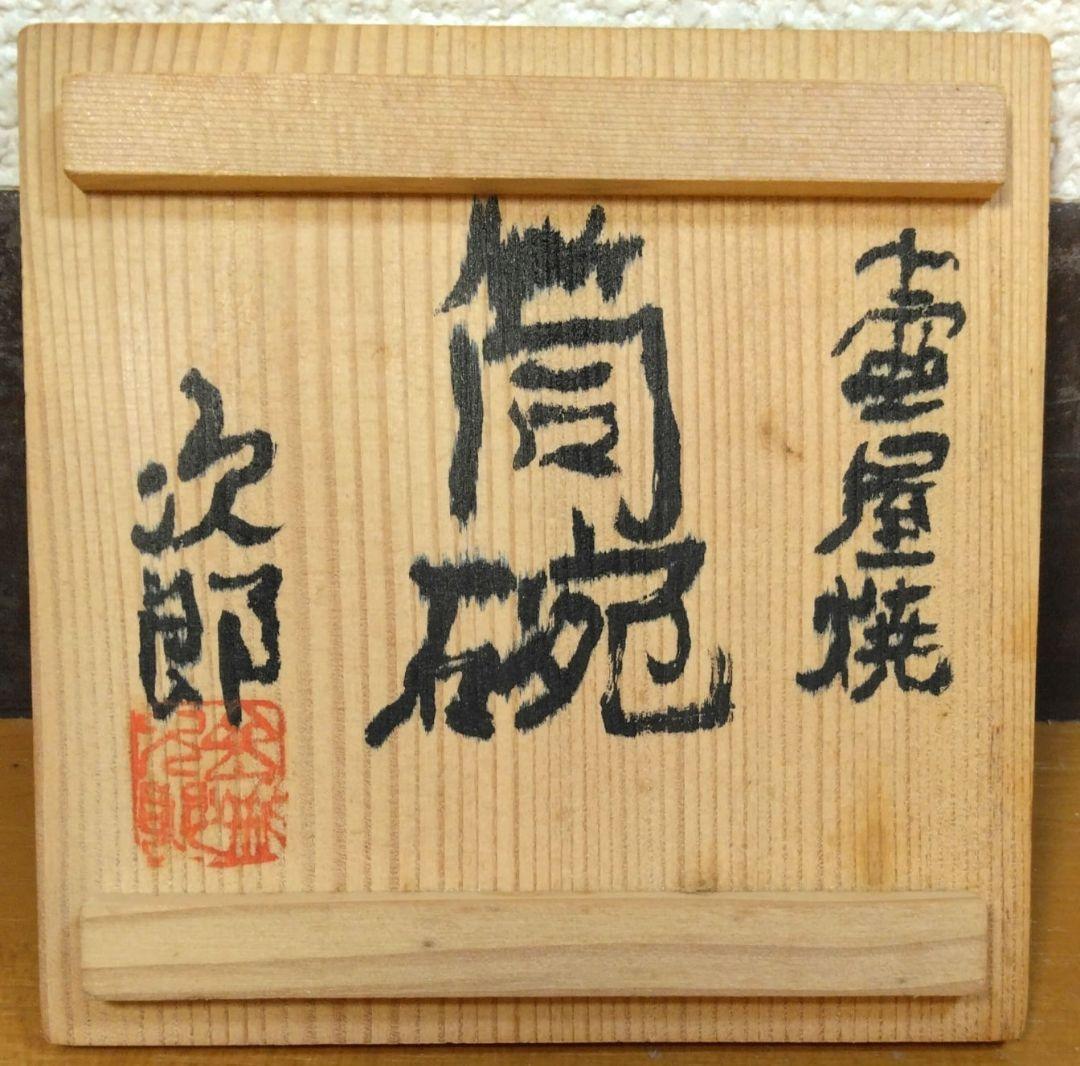 壷屋焼
筒碗
次郎